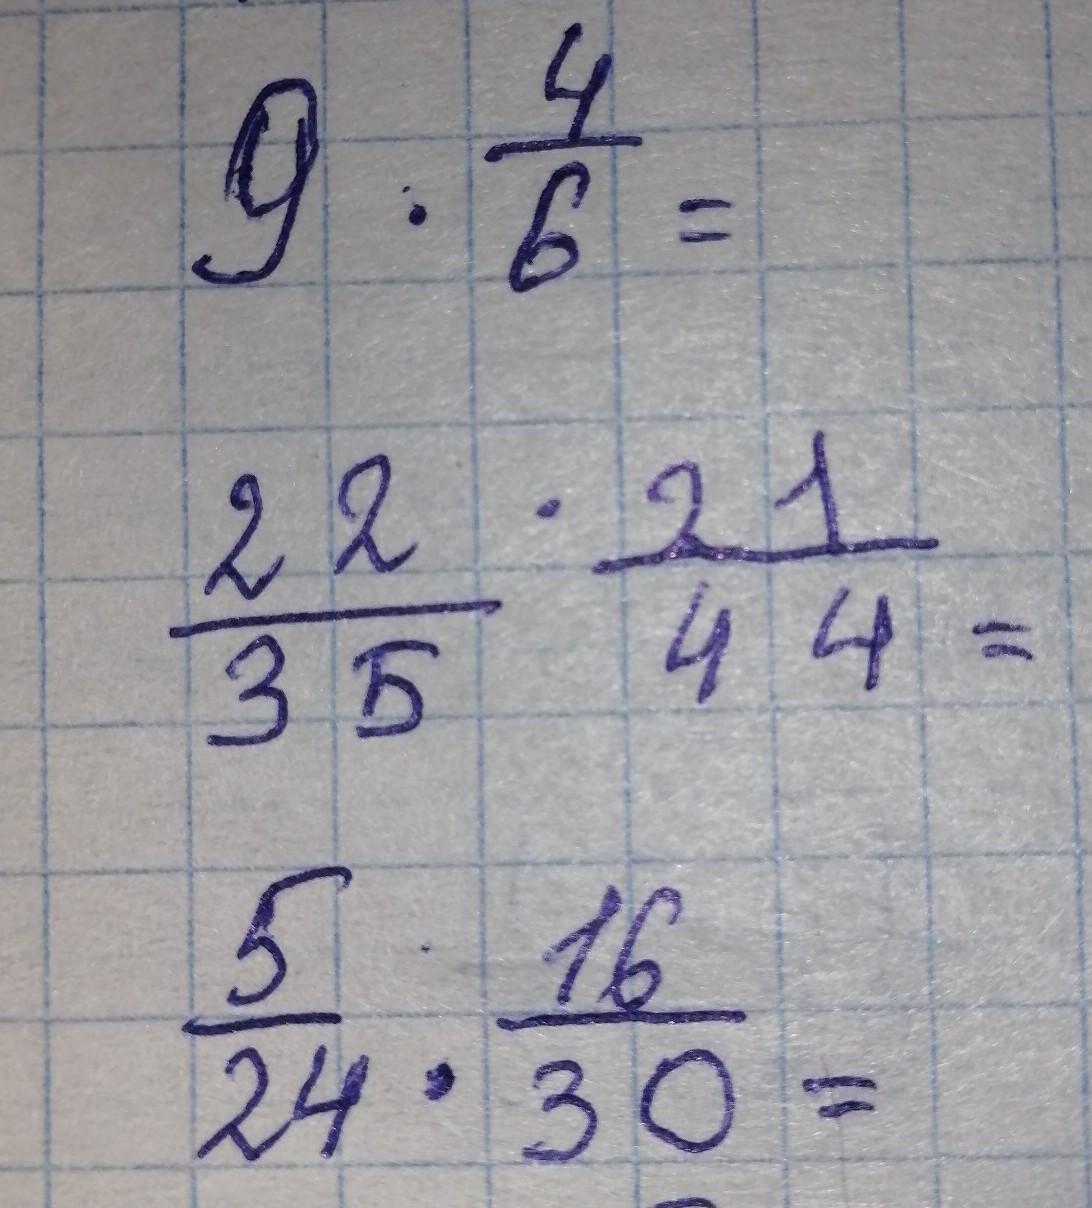 9 · 4/6 =
22/35 · 21/44 =
5/24 · 16/30 =